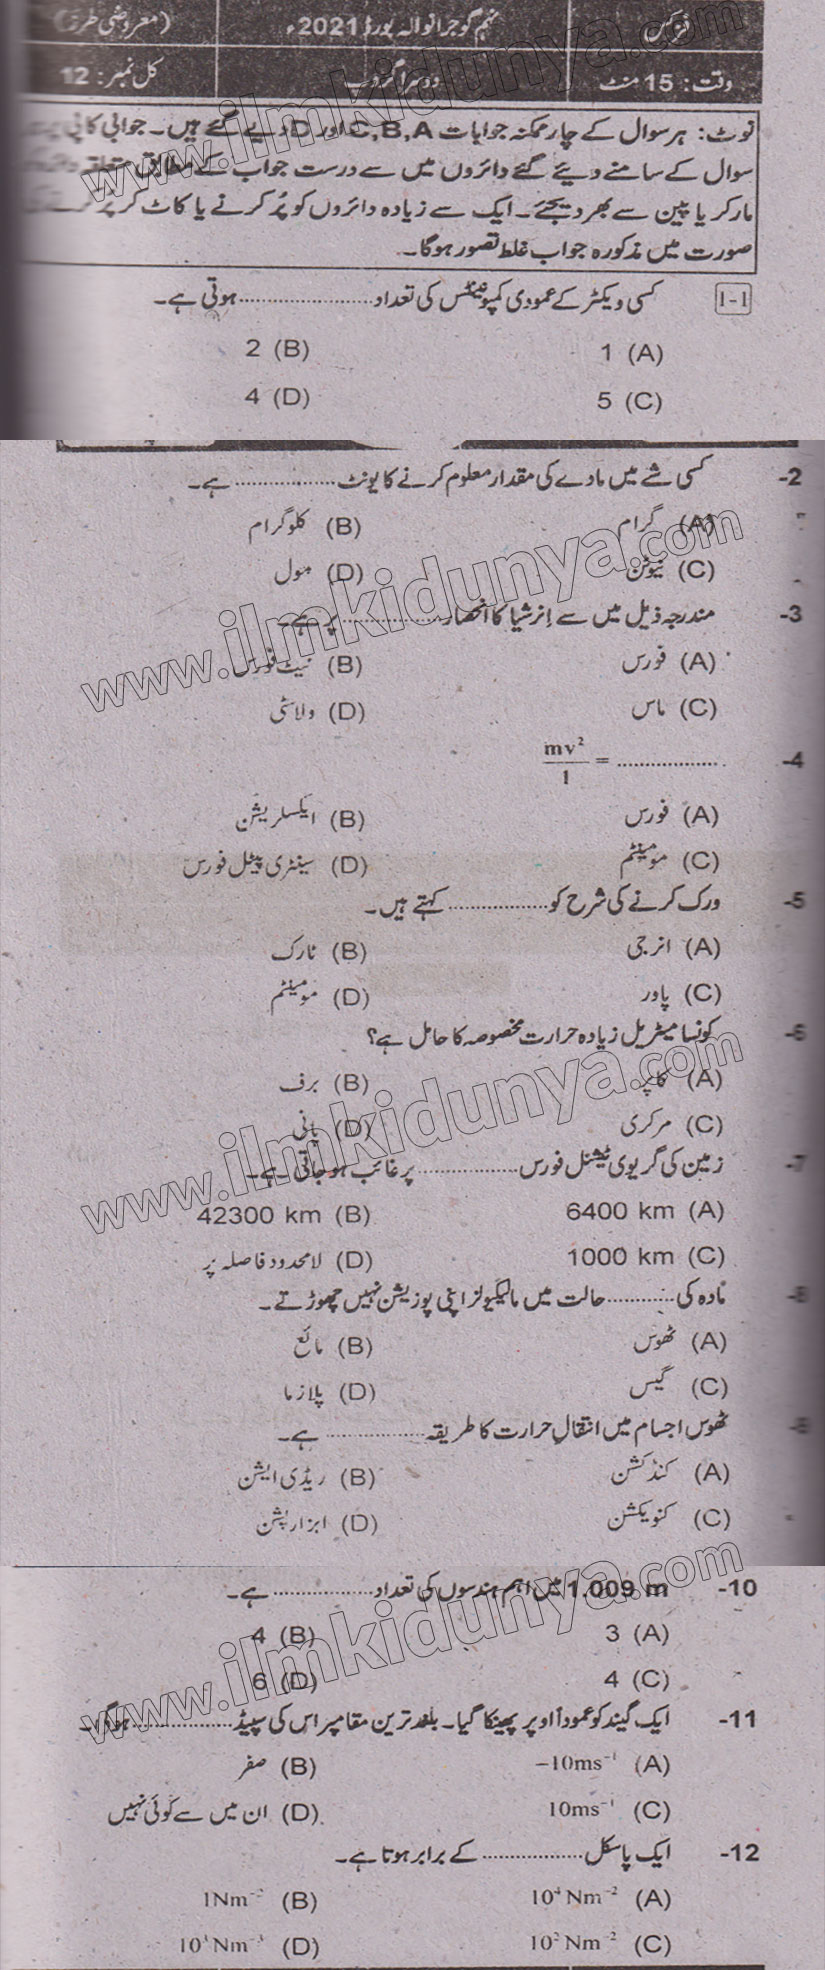 فزکس نہم گوجرانوالہ بورڈ 2021ء (معروضی طرز)
وقت: 15 منٹ دوسرا گروپ کل نمبر: 12
نوٹ: ہر سوال کے چار ممکنہ جوابات C,B,A اور D دیے گئے ہیں۔ جوابی کاپی پر
سوال کے سامنے دیئے گئے دائروں میں سے درست جواب کے مطابق متعلقہ دائرہ
مارکر یا پین سے بھر دیجئے۔ ایک سے زیادہ دائروں کو پُر کرنے یا کاٹ کر پُر کرنے کی
صورت میں مذکورہ جواب غلط تصور ہوگا۔
1-1 کسی ویکٹر کے عمودی کمپوننٹس کی تعداد .................... ہوتی ہے۔
(A) 1 (B) 2
(C) 5 (D) 4
-2 کسی شے میں مادے کی مقدار معلوم کرنے کا یونٹ ................ ہے۔
(A) گرام (B) کلوگرام
(C) نیوٹن (D) مول
-3 مندرجہ ذیل میں سے اِنرشیا کا انحصار ................ پر ہے۔
(A) فورس (B) نیٹ فورس
(C) ماس (D) ولاسٹی
-4 mv²/1 = ..................
(A) فورس (B) ایکسلریشن
(C) مومینٹم (D) سینٹری پیٹل فورس
-5 ورک کرنے کی شرح کو ................ کہتے ہیں۔
(A) انرجی (B) ٹارک
(C) پاور (D) مومینٹم
-6 کونسا میٹریل زیادہ حرارت مخصوصہ کا حامل ہے؟
(A) کاپر (B) برف
(C) مرکری (D) پانی
-7 زمین کی گریوی ٹیشنل فورس ................ پر غائب ہو جاتی ہے۔
(A) 6400 km (B) 42300 km
(C) 1000 km (D) لامحدود فاصلہ پر
-8 مادہ کی ........... حالت میں مالیکیولز اپنی پوزیشن نہیں چھوڑتے۔
(A) ٹھوس (B) مائع
(C) گیس (D) پلازما
ٹھوس اجسام میں انتقالِ حرارت کا طریقہ ................ ہے۔
(A) کنڈکشن (B) ریڈی ایشن
(C) کنویکشن (D) ابزارپشن
-10 1.009 m میں اہم ہندسوں کی تعداد ................ ہے۔
(A) 3 (B) 4
(C) 4 (D) 6
-11 ایک گیند کو عموداً اوپر پھینکا گیا۔ بلند ترین مقام پر اس کی سپیڈ ................ ہوگی۔
(A) −10ms⁻¹ (B) صفر
(C) 10ms⁻¹ (D) ان میں سے کوئی نہیں
-12 ایک پاسکل ................ کے برابر ہوتا ہے۔
(A) 10⁴ Nm⁻² (B) 1Nm⁻²
(C) 10² Nm⁻² (D) 10³ Nm⁻³
www.ilmkidunya.com
www.ilmkidunya.com
www.ilmkidunya.com
www.ilmkidunya.com